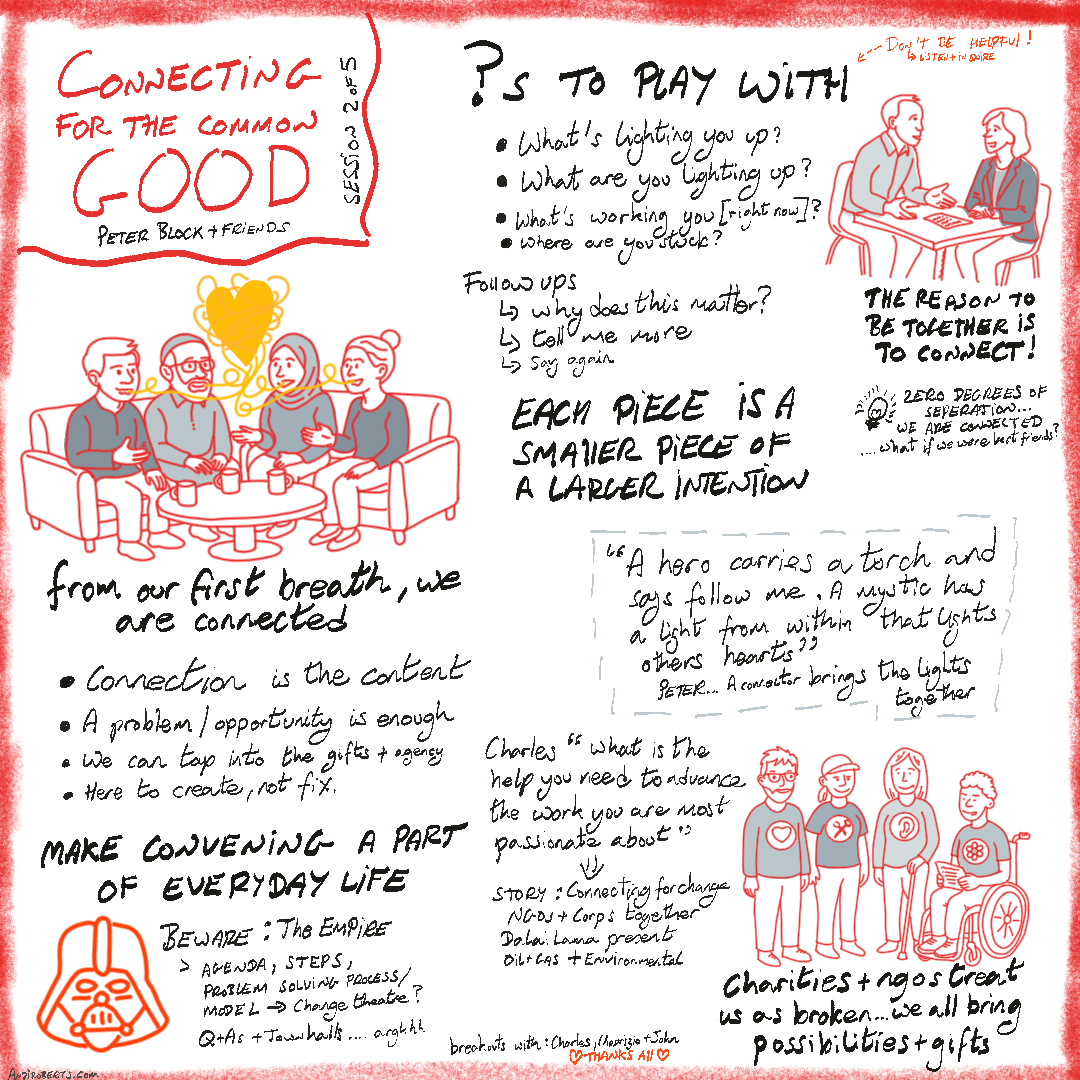 CONNECTING
FOR THE COMMON
GOOD
PETER BLOCK + FRIENDS
SESSION 2 OF 5
?S TO PLAY WITH
DON'T BE HELPFUL!
↳ LISTEN + INQUIRE
• What's lighting you up?
• What are you lighting up?
• What's working you [right now]?
• Where are you stuck?
Follow ups
↳ why does this matter?
↳ tell me more
↳ Say again
THE REASON TO
BE TOGETHER IS
TO CONNECT!
ZERO DEGREES OF
SEPERATION...
WE ARE CONNECTED
....what if we were best friends?
EACH PIECE IS A
SMALLER PIECE OF
A LARGER INTENTION
from our first breath, we
are connected
• Connection is the content
• A problem/opportunity is enough
• We can tap into the gifts + agency
• Here to create, not fix.
MAKE CONVENING A PART
OF EVERYDAY LIFE
BEWARE: THE EMPIRE
> AGENDA, STEPS,
PROBLEM SOLVING PROCESS/
MODEL → Change theatre?
Q+As + Townhalls.... arghhh
"A hero carries a torch and
says follow me. A mystic has
a light from within that lights
others hearts"
PETER... A connector brings the lights
together
Charles "what is the
help you need to advance
the work you are most
passionate about"
STORY: Connecting for change
NGOs + Corps together
Dalai Lama present
OIL+GAS + Environmental
Charities + ngos treat
us as broken...we all bring
possibilities + gifts
breakouts with: Charles, Maurizio + John
THANKS All
ANDIROBERTS.COM